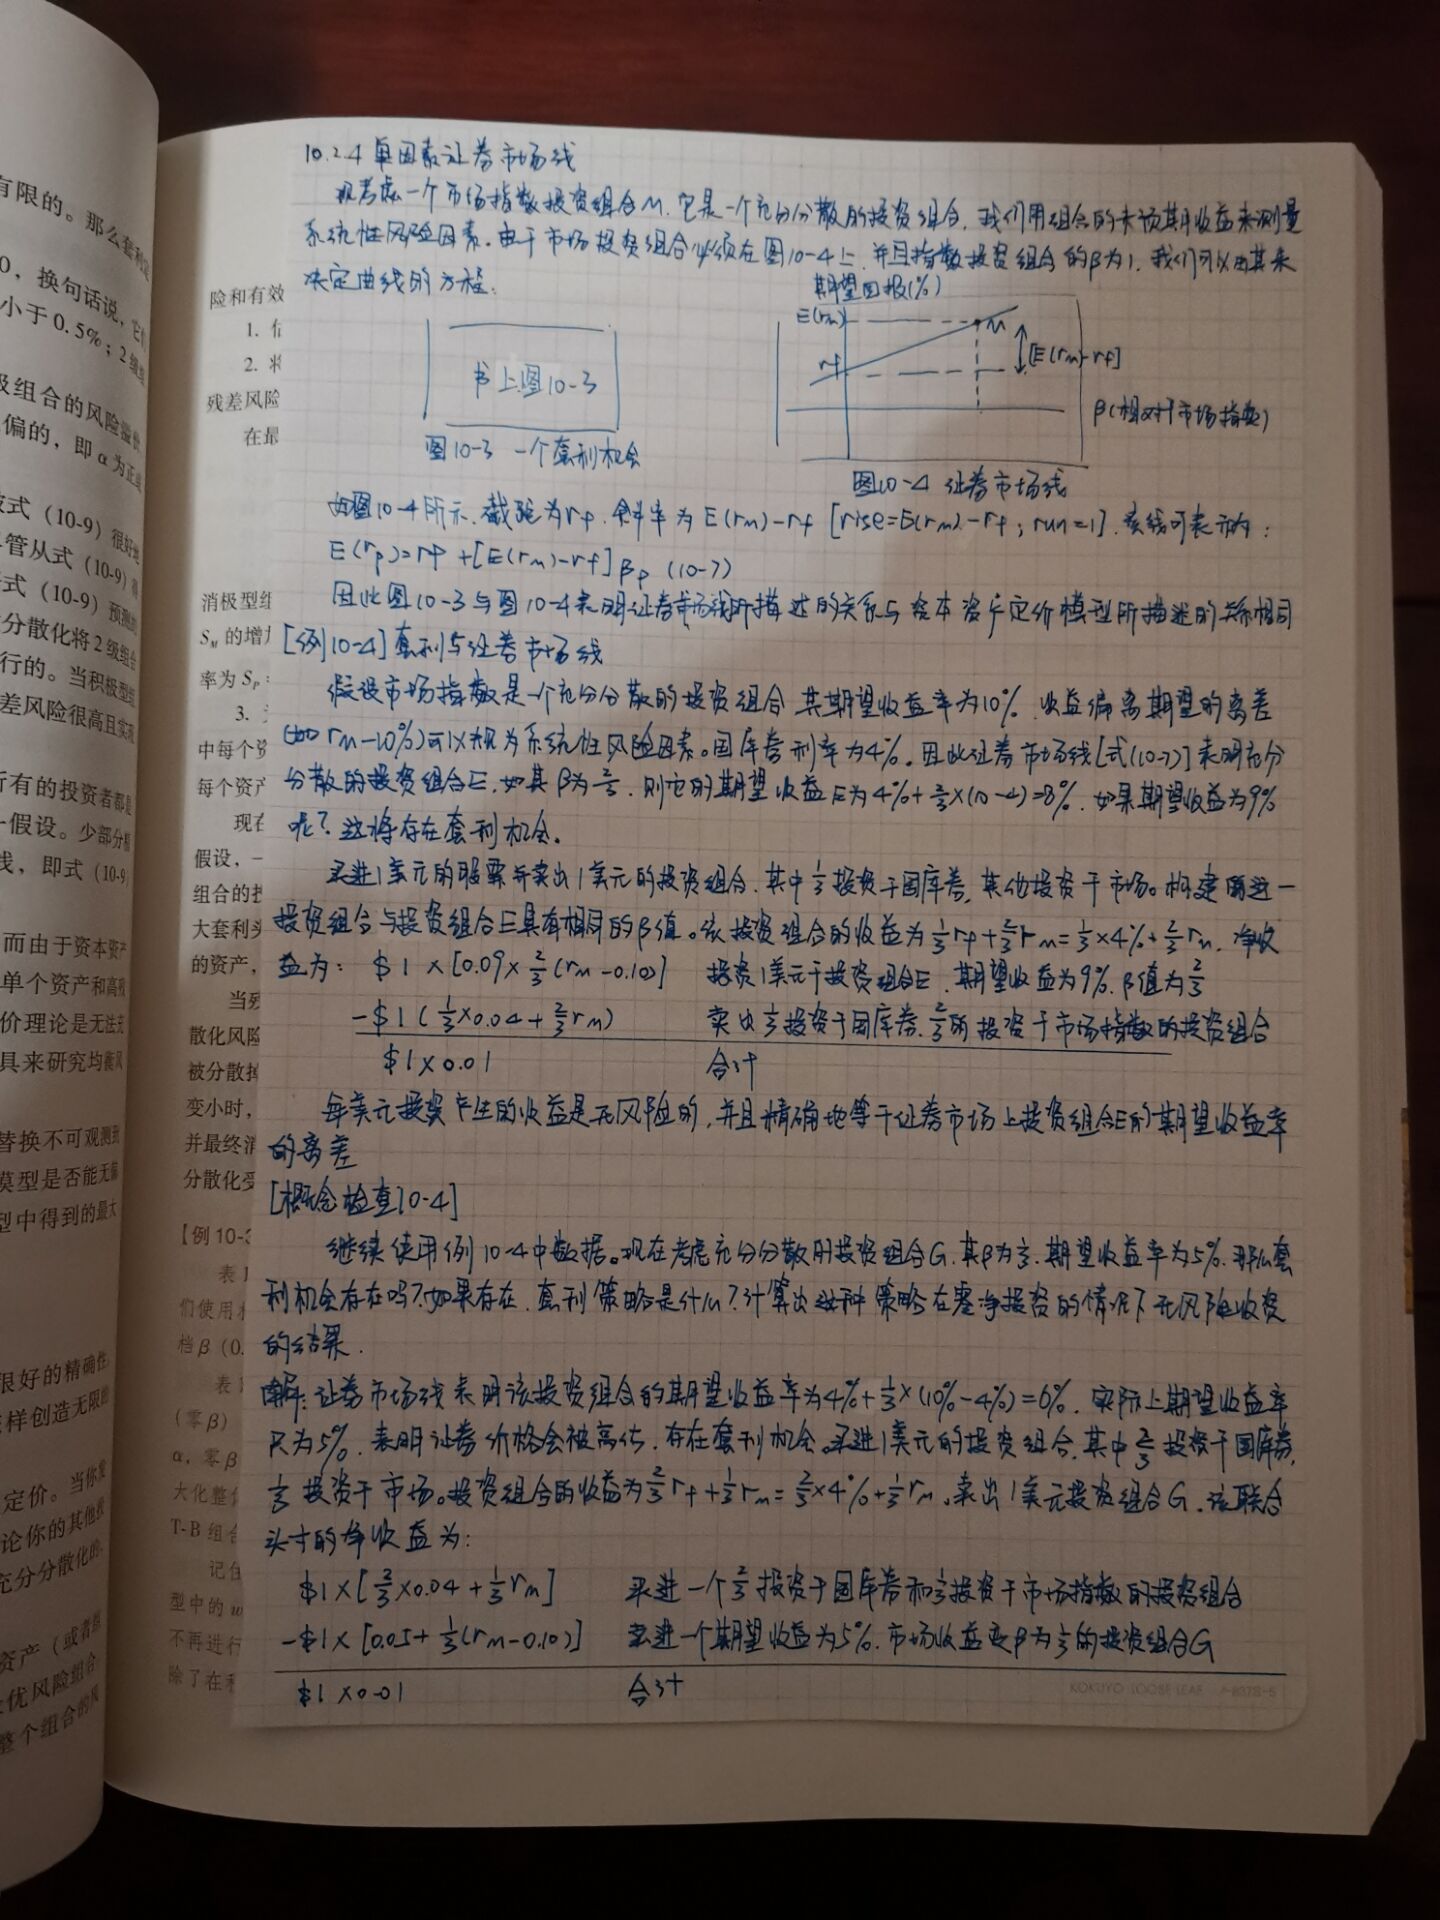 有限的。那么套利定
0，换句话说，它们
小于0.5%；2级组
级组合的风险溢价
偏的，即α为正或
被式（10-9）很好地
管从式（10-9）得
式（10-9）预测的
分散化将2级组合
行的。当积极型组
差风险很高且实现
所有的投资者都是
一假设。少部分相
线，即式（10-9）
而由于资本资产
单个资产和高残
价理论是无法充
具来研究均衡风
替换不可观测到
模型是否能无偏
型中得到的最大
很好的精确性
样创造无限的
定价。当你发
论你的其他投
充分分散化的
资产（或者组
优风险组合
整个组合的风
险和有效
1. 有
2. 将
残差风险
在最
消极型组
SM 的增加
率为 SP
3.
中每个资
每个资产
现在
假设，一
组合的投
大套利头
的资产，
当残
散化风险
被分散掉
变小时，
并最终消
分散化受
【例10-3
表1
们使用和
档β（0.
表1
（零β）
α，零β
大化整体
T-B 组合
记住
型中的 w
不再进行
除了在利
10.2.4 单因素证券市场线
现考虑一个市场指数投资组合M，它是一个充分分散的投资组合，我们用组合的未预期收益来测量
系统性风险因素。由于市场投资组合必须在图10-4上，并且指数投资组合的β为1，我们可以由其来
决定曲线的方程：
期望回报(%)
E(rm)
M
rf
[E(rm)-rf]
β(相对于市场指数)
书上图10-3
图10-3 一个套利机会
图10-4 证券市场线
如图10-4所示，截距为rf，斜率为E(rm)-rf [rise=E(rm)-rf；run=1]，该线可表示为：
E(rp)=rf+[E(rm)-rf]βp (10-7)
因此图10-3与图10-4表明证券市场线所描述的关系与资本资产定价模型所描述的关系相同
[例10-4]套利与证券市场线
假设市场指数是一个充分分散的投资组合，其期望收益率为10%，收益偏离期望的离差
(如rm-10%)可以视为系统性风险因素。国库券利率为4%。因此证券市场线[式(10-7)]表明充分
分散的投资组合E，如其β为2/3，则它的期望收益E为4%+2/3×(10-4)=8%，如果期望收益为9%
呢？这将存在套利机会。
买进1美元的股票并卖出1美元的投资组合，其中1/3投资于国库券，其他投资于市场。构建的这一
投资组合与投资组合E具有相同的β值。该投资组合的收益为1/3rf+2/3rm=1/3×4%+2/3rm，净收
益为： $1×[0.09×2/3(rm-0.10)] 投资1美元于投资组合E，期望收益为9%，β值为2/3
-$1(1/3×0.04+2/3rm) 卖出1/3投资于国库券，2/3的投资于市场指数的投资组合
$1×0.01 合计
每美元投资产生的收益是无风险的，并且精确地等于证券市场上投资组合E的期望收益率
的离差
[概念检查10-4]
继续使用例10-4中数据。现在考虑充分分散的投资组合G，其β为1/3，期望收益率为5%，那么套
利机会存在吗？如果存在，套利策略是什么？计算出这种策略在零净投资的情况下无风险收资
的结果。
解：证券市场线表明该投资组合的期望收益率为4%+1/3×(10%-4%)=6%，实际上期望收益率
只为5%，表明证券价格会被高估，存在套利机会。买进1美元的投资组合，其中2/3投资于国库券，
1/3投资于市场。投资组合的收益为2/3rf+1/3rm=2/3×4%+1/3rm。卖出1美元投资组合G，该联合
头寸的净收益为：
$1×[2/3×0.04+1/3rm] 买进一个2/3投资于国库券和1/3投资于市场指数的投资组合
-$1×[0.05+1/3(rm-0.10)] 卖进一个期望收益为5%，市场收益变β为1/3的投资组合G
$1×0.01 合计
KOKUYO LOOSE-LEAF